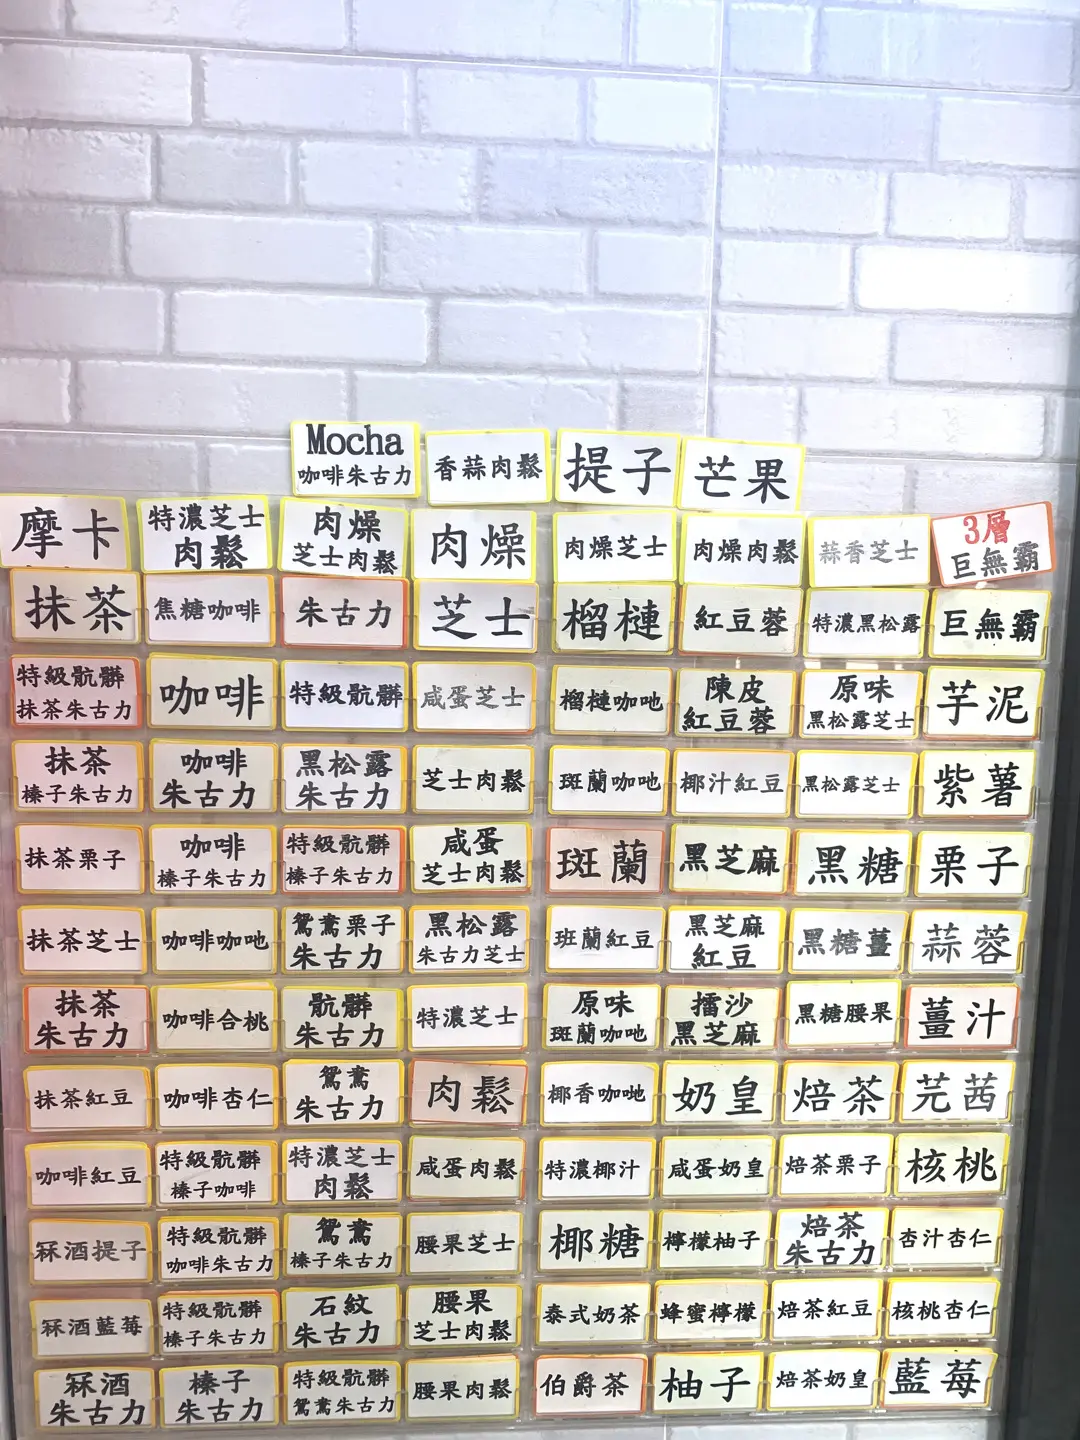 Mocha
咖啡朱古力
香蒜肉鬆
提子
芒果
摩卡
特濃芝士
肉鬆
肉燥
芝士肉鬆
肉燥
肉燥芝士
肉燥肉鬆
蒜香芝士
3層
巨無霸
抹茶
焦糖咖啡
朱古力
芝士
榴槤
紅豆蓉
特濃黑松露
巨無霸
特級骯髒
抹茶朱古力
咖啡
特級骯髒
咸蛋芝士
榴槤咖吔
陳皮
紅豆蓉
原味
黑松露芝士
芋泥
抹茶
榛子朱古力
咖啡
朱古力
黑松露
朱古力
芝士肉鬆
斑蘭咖吔
椰汁紅豆
黑松露芝士
紫薯
抹茶栗子
咖啡
榛子朱古力
特級骯髒
榛子朱古力
咸蛋
芝士肉鬆
斑蘭
黑芝麻
黑糖
栗子
抹茶芝士
咖啡咖吔
鴛鴦栗子
朱古力
黑松露
朱古力芝士
班蘭紅豆
黑芝麻
紅豆
黑糖薑
蒜蓉
抹茶
朱古力
咖啡合桃
骯髒
朱古力
特濃芝士
原味
斑蘭咖吔
擂沙
黑芝麻
黑糖腰果
薑汁
抹茶紅豆
咖啡杏仁
鴛鴦
朱古力
肉鬆
椰香咖吔
奶皇
焙茶
芫茜
咖啡紅豆
特級骯髒
榛子咖啡
特濃芝士
肉鬆
咸蛋肉鬆
特濃椰汁
咸蛋奶皇
焙茶栗子
核桃
冧酒提子
特級骯髒
咖啡朱古力
鴛鴦
榛子朱古力
腰果芝士
椰糖
檸檬柚子
焙茶
朱古力
杏汁杏仁
冧酒藍莓
特級骯髒
榛子朱古力
石紋
朱古力
腰果
芝士肉鬆
泰式奶茶
蜂蜜檸檬
焙茶紅豆
核桃杏仁
冧酒
朱古力
榛子
朱古力
特級骯髒
鴛鴦朱古力
腰果肉鬆
伯爵茶
柚子
焙茶奶皇
藍莓